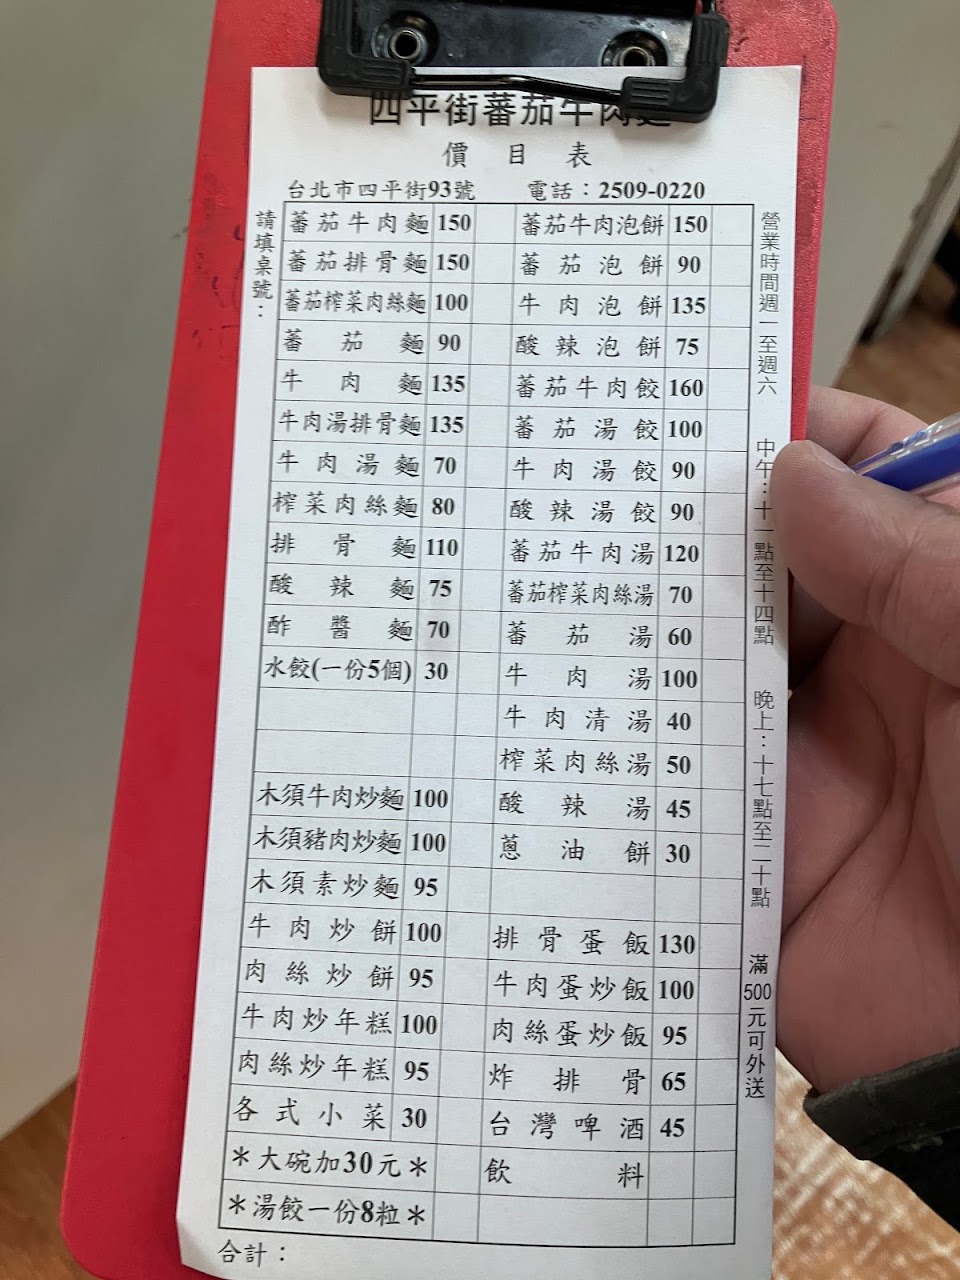 四平街蕃茄牛肉麵
價目表
台北市四平街93號 電話：2509-0220
請填桌號：
蕃茄牛肉麵 150 蕃茄牛肉泡餅 150
蕃茄排骨麵 150 蕃茄泡餅 90
蕃茄榨菜肉絲麵 100 牛肉泡餅 135
蕃茄麵 90 酸辣泡餅 75
牛肉麵 135 蕃茄牛肉餃 160
牛肉湯排骨麵 135 蕃茄湯餃 100
牛肉湯麵 70 牛肉湯餃 90
榨菜肉絲麵 80 酸辣湯餃 90
排骨麵 110 蕃茄牛肉湯 120
酸辣麵 75 蕃茄榨菜肉絲湯 70
酢醬麵 70 蕃茄湯 60
水餃(一份5個) 30 牛肉湯 100
牛肉清湯 40
榨菜肉絲湯 50
木須牛肉炒麵 100 酸辣湯 45
木須豬肉炒麵 100 蔥油餅 30
木須素炒麵 95
牛肉炒餅 100 排骨蛋飯 130
肉絲炒餅 95 牛肉蛋炒飯 100
牛肉炒年糕 100 肉絲蛋炒飯 95
肉絲炒年糕 95 炸排骨 65
各式小菜 30 台灣啤酒 45
＊大碗加30元＊ 飲料
＊湯餃一份8粒＊
合計：
營業時間週一至週六 中午：十一點至十四點 晚上：十七點至二十點 滿500元可外送